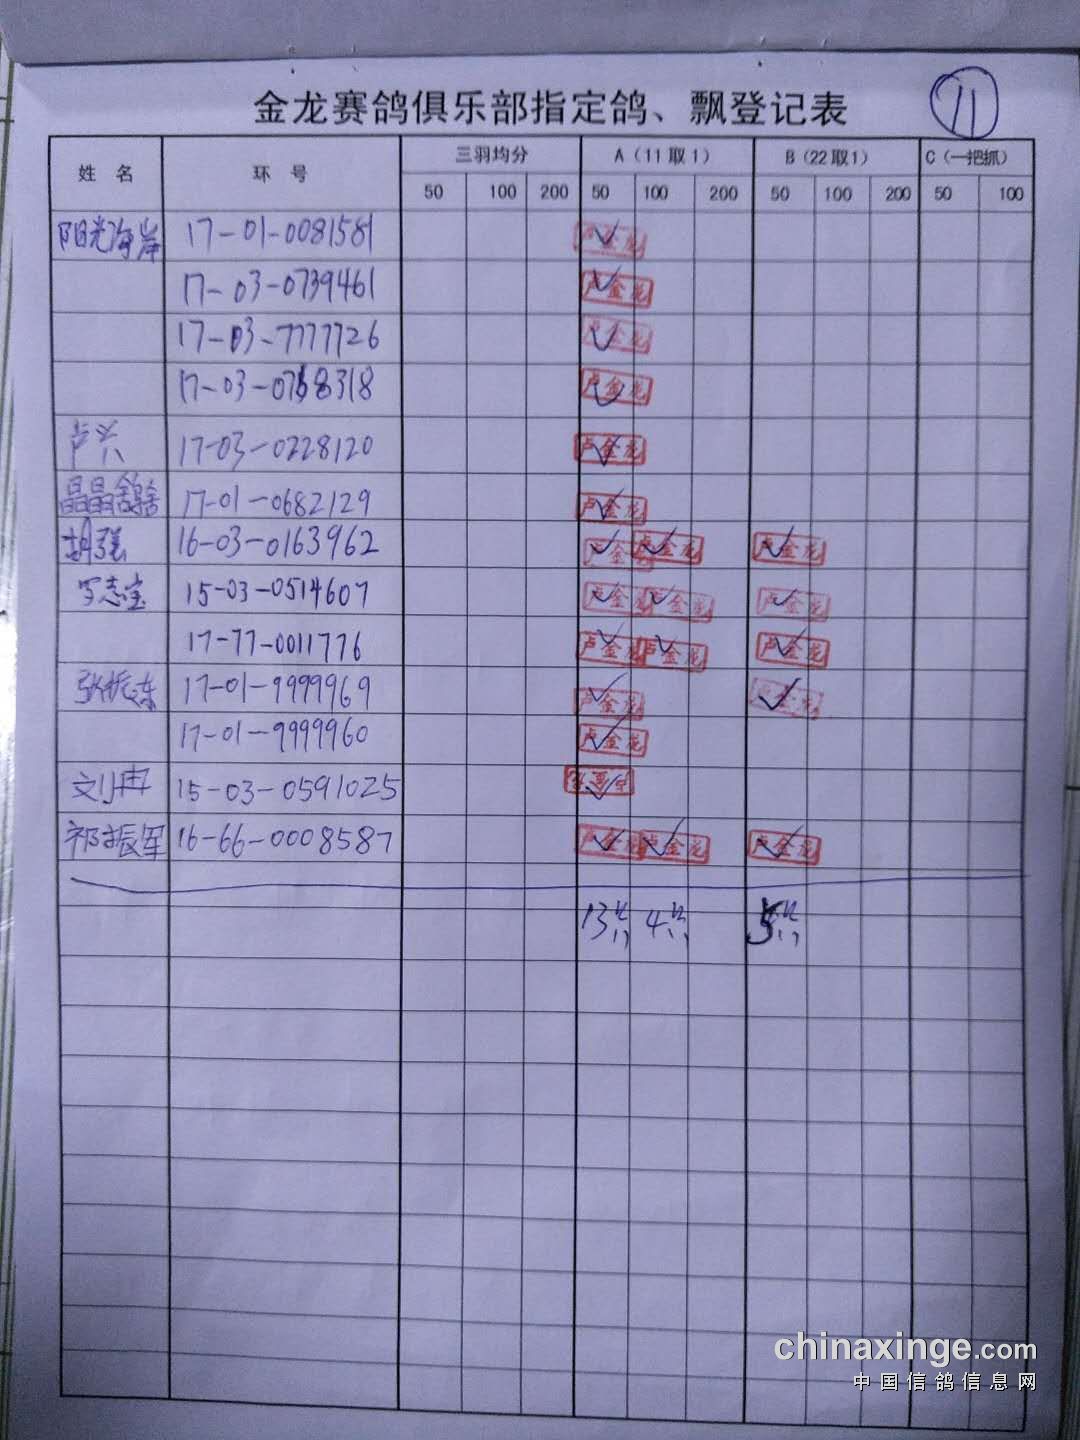 金龙赛鸽俱乐部指定鸽、飘登记表 11
姓名 环号 三羽均分 A（11取1） B（22取1） C（一把抓）
50 100 200 50 100 200 50 100 200 50 100
阳光海岸 17-01-0081581 ✓
17-03-0739461 卢金龙 ✓
17-03-7777726 ✓
17-03-0768318 卢金龙 ✓
卢兴 17-03-0228120 卢金龙 ✓
晶晶鸽舍 17-01-0682129 卢金龙 ✓
胡强 16-03-0163962 卢金龙 ✓ 卢金龙 ✓ 卢金龙 ✓
罗志宝 15-03-0514607 卢金龙 ✓ 卢金龙 ✓ 卢金龙 ✓
17-77-0011776 卢金龙 ✓ 卢金龙 ✓ 卢金龙 ✓
张振东 17-01-9999969 卢金龙 ✓ 卢金龙 ✓
17-01-9999960 卢金龙 ✓
刘冉 15-03-0591025 ✓
祁振军 16-66-0008587 卢金龙 ✓ 卢金龙 ✓ 卢金龙 ✓
13共 4共 5共
chinaxinge.com
中国信鸽信息网